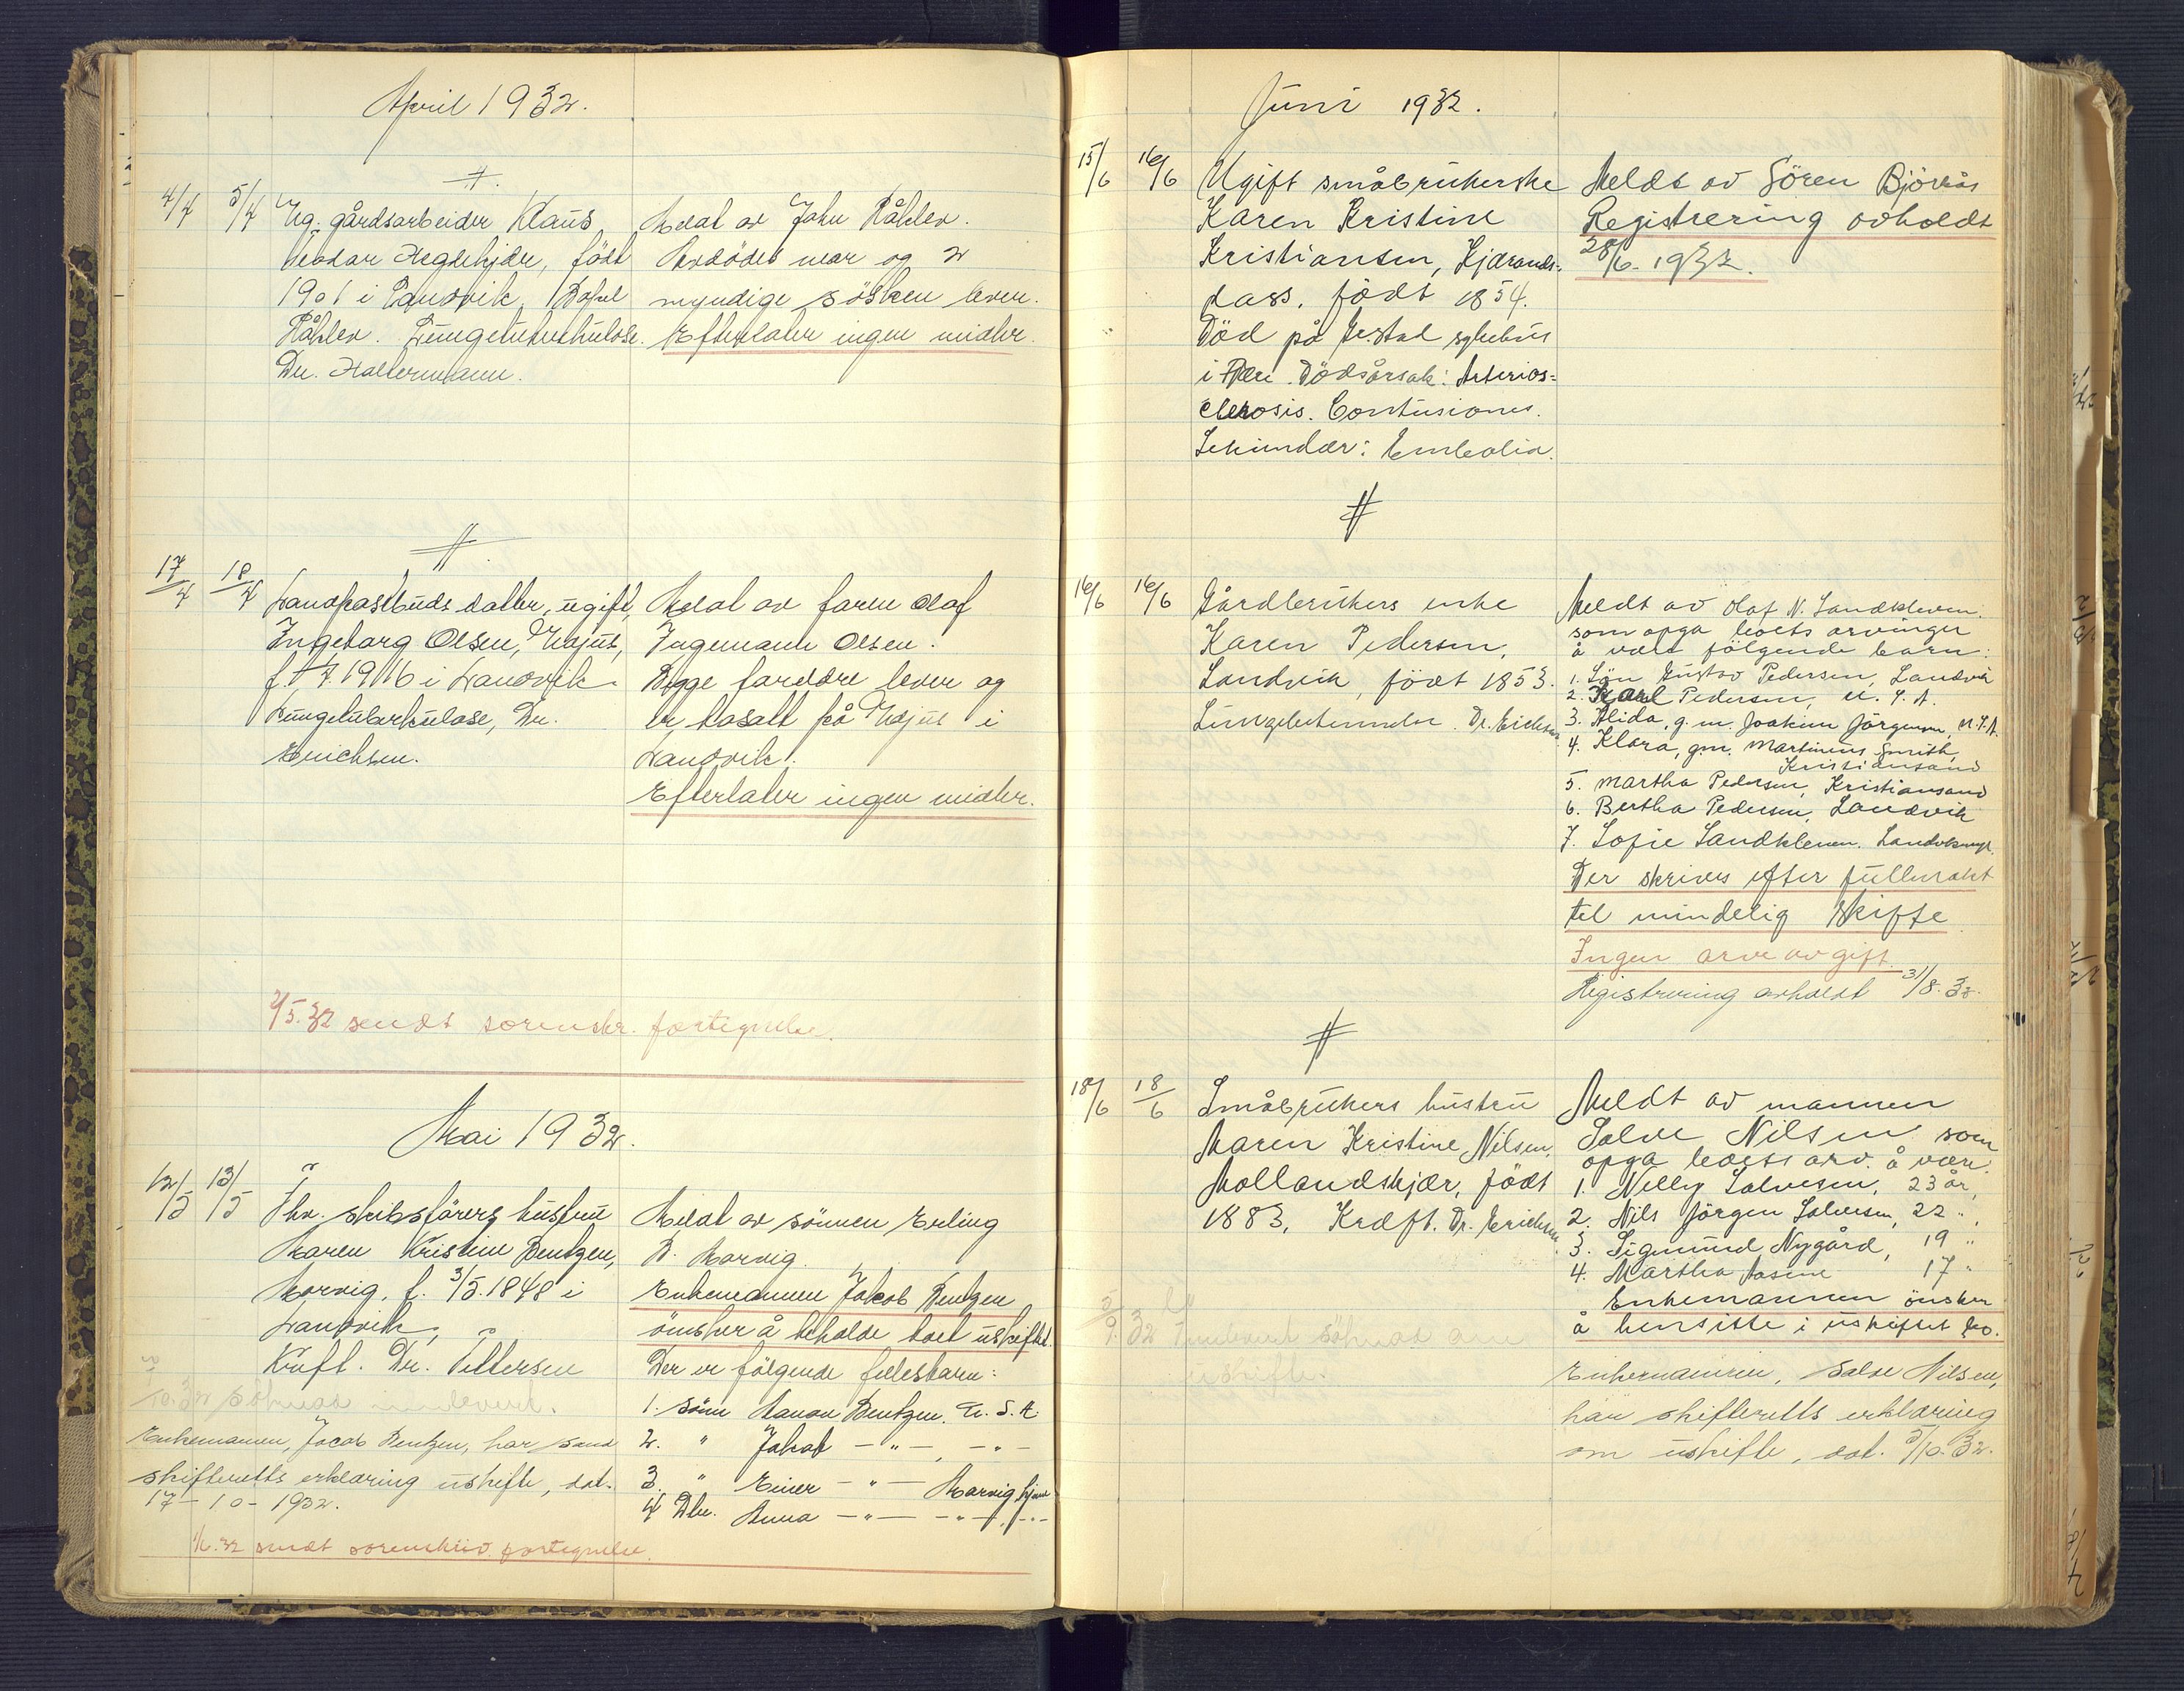 April 1932.
4/4 5/4 Ug. gårdsarbeider Klaus
født
1901 i Landvik. Bopel
Råhlev. Lungetuberkulose.
Dr. Haltermann.
Meldt av John Råhlev.
Avdødes mor og 2
myndige søsken lever.
Efterlater ingen midler.
17/4 18/4 Landpostbuds datter, ugift,
Ingeborg Olsen,
1916 i Landvik.
Lungetuberkulose, Dr.
Erichsen.
Meldt av faren Olaf
Ingemann Olsen.
Begge foreldre lever og
er bosatt på i
Landvik.
Efterlater ingen midler.
2/5.32 sendt sorenskr. fortegnelse.
Mai 1932.
12/5 13/5 Fhv. skibsførers hustru
Maren Kristine Bentzen,
Morvig, f. 3/5.1848 i
Landvik,
Kreft. Dr. Pettersen
Meldt av sønnen Erling
B. Morvig.
Enkemannen Jakob Bentzen
ønsker å beholde boet uskiftet.
Der er følgende fellesbarn:
1. Sønn Bentzen, U.S.A.
2. " Jakob — " — , — " —
3. " Einer — " —
4 Dtr. Anna — " — — " —
Enkemannen, Jacob Bentzen, har
skifteretts erklæring uskifte, dat.
17-10-1932.
1/6.32 sendt sorenskriv. fortegnelse.
Juni 1932.
15/6 16/6 Ugift småbrukerske
Karen Kristine
Kristiansen, Kjærands-
dass, født 1854.
Død på sykehus
i Dødsårsak: Arterios=
clerosis. Contusiones.
Sekundær: Embolia.
Meldt av Sören Björkås
Registrering avholdt
28/6-1932.
16/6 16/6 Gårdbrukers enke
Karen Pedersen,
Landvik, født 1853.
Dr. Erichsen
Meldt av Olaf N. Sandkleven
som opga boets arvinger
å være følgende barn:
1. Søn Gustav Pedersen, Landvik
2. Karl Pedersen, U.S.A.
3. Alida, g.m. Joakim Jörgensen, U.S.A.
4. Klara, gm. Martinius Smith,
Kristiansand
5. Martha Pedersen, Kristiansand
6. Bertha Pedersen, Landvik
7. Sofie Sandkleven.
Der skrives efter fullmakt
til mindelig skifte
Ingen arveavgift.
Registrering avholdt 31/8.32.
18/6 18/6 Småbrukers hustru
Maren Kristine Nilsen,
Mollandskjær, født
1883. Kræft. Dr. Erichsen
Meldt av mannen
Salve Nilsen som
opga boets arv. å være:
1. Nelly Salvesen, 23 år,
2. Nils Jörgen Salvesen, 22 ",
3. Sigmund Nygård, 19 "
4. Martha Aasine 17 "
Enkemannen ønsker
å hensitte i uskiftet bo.
Enkemannen, Salve Nilsen,
har skifteretts erklæring
om uskifte, dat.